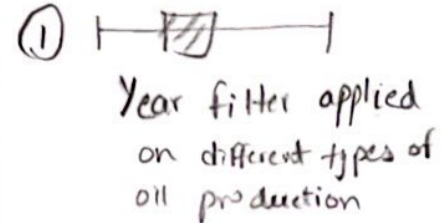 ①
Year filter applied
on different types of
oil production